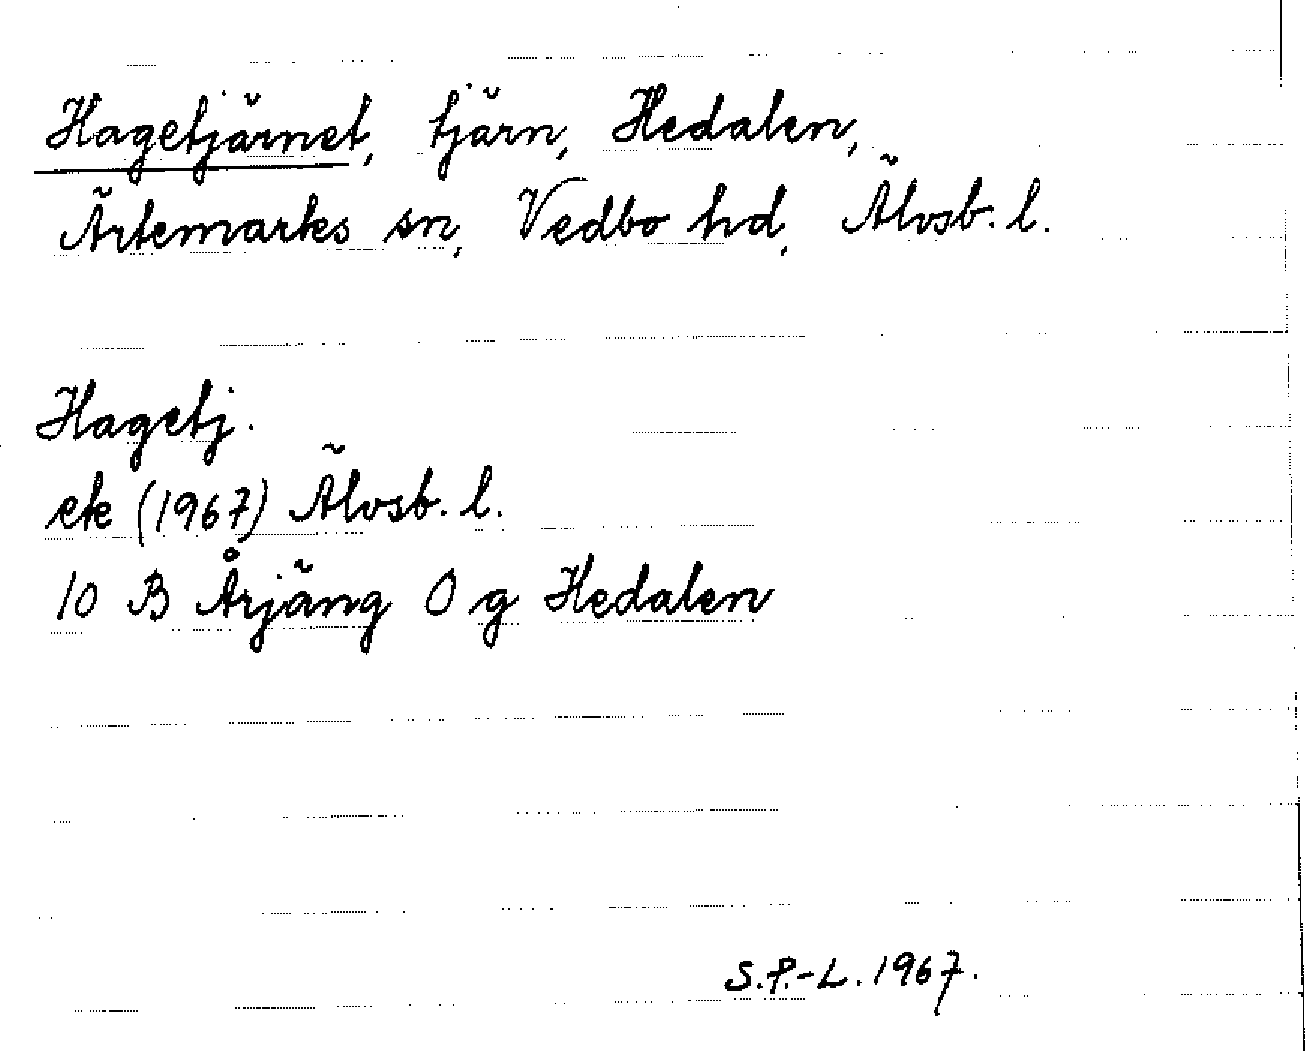 Hagetjärnet, tjärn, Hedalen,
Ärtemarks sn, Vedbo hd, Älvsb. l.
Hagetj.
ek (1967) Älvsb. l.
10 B Årjäng 0 g Hedalen
S.P.-L. 1967.